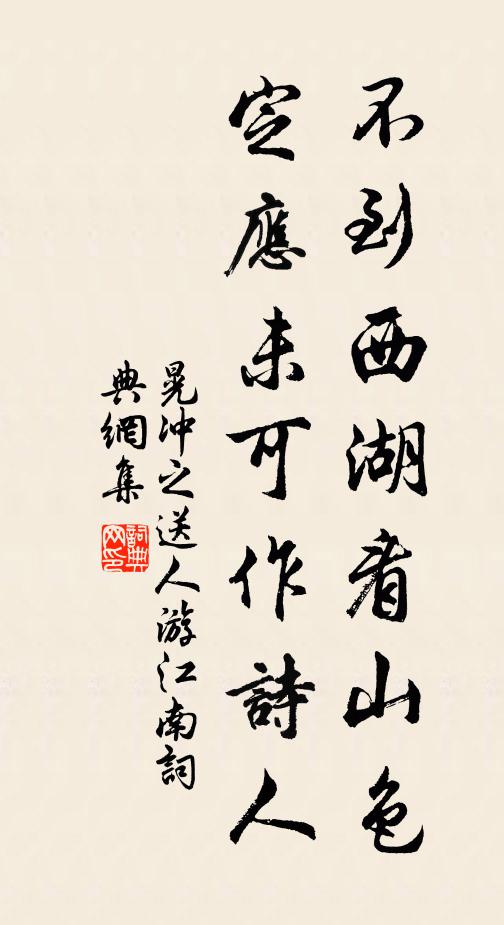 不到西湖看山色
定應未可作詩人
晃沖之送人游江南詞
典網集
詞典
网印